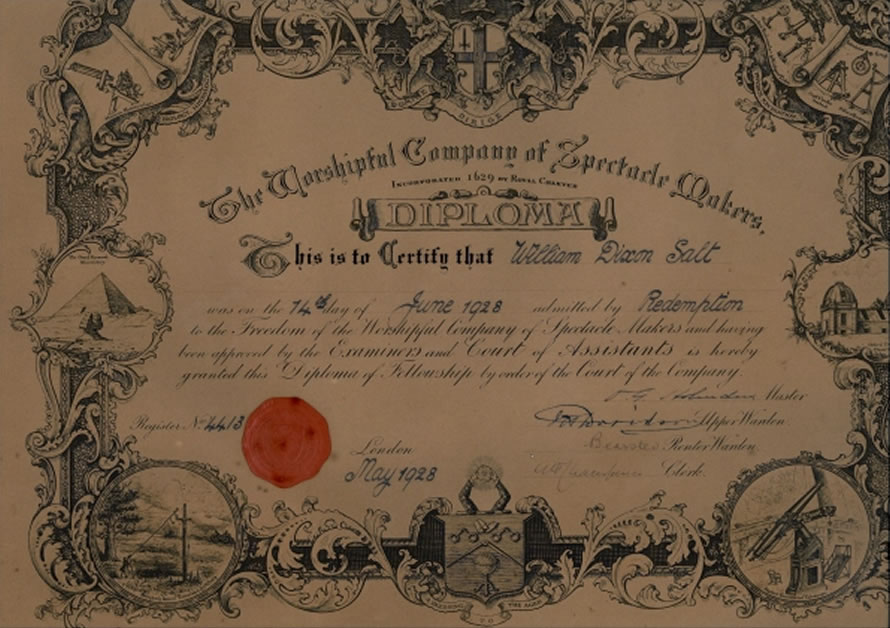 DOMINE DIRIGE
The Worshipful Company of Spectacle Makers,
INCORPORATED 1629 BY ROYAL CHARTER
DIPLOMA
This is to Certify that William Dixon Salt
was on the 14th day of June 1928 admitted by Redemption
to the Freedom of the Worshipful Company of Spectacle Makers and having
been approved by the Examiners and Court of Assistants is hereby
granted this Diploma of Fellowship by order of the Court of the Company.
Master
Register No. 4413 Upper Warden.
London Renter Warden.
May 1928 Clerk.
A BLESSING TO THE AGED